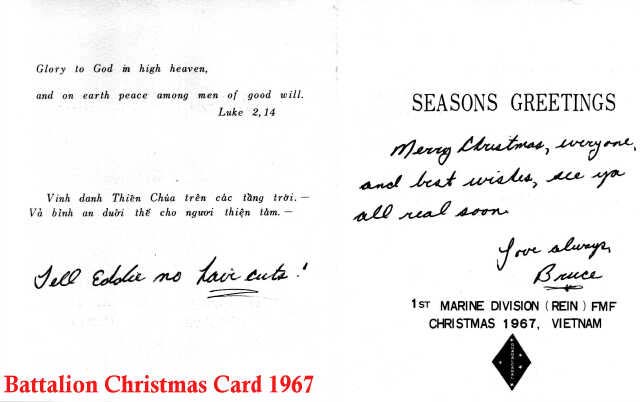 Glory to God in high heaven,
and on earth peace among men of good will.
Luke 2,14
Vinh danh Thiên Chúa trên các tầng trời.—
Và bình an dưới thế cho ngươi thiện tâm.—
Tell Eddie no hair cuts!
SEASONS GREETINGS
Merry Christmas, everyone,
and best wishes, see ya
all real soon.
Love always,
Bruce
1ST MARINE DIVISION (REIN) FMF
CHRISTMAS 1967, VIETNAM
GUADALCANAL
Battalion Christmas Card 1967